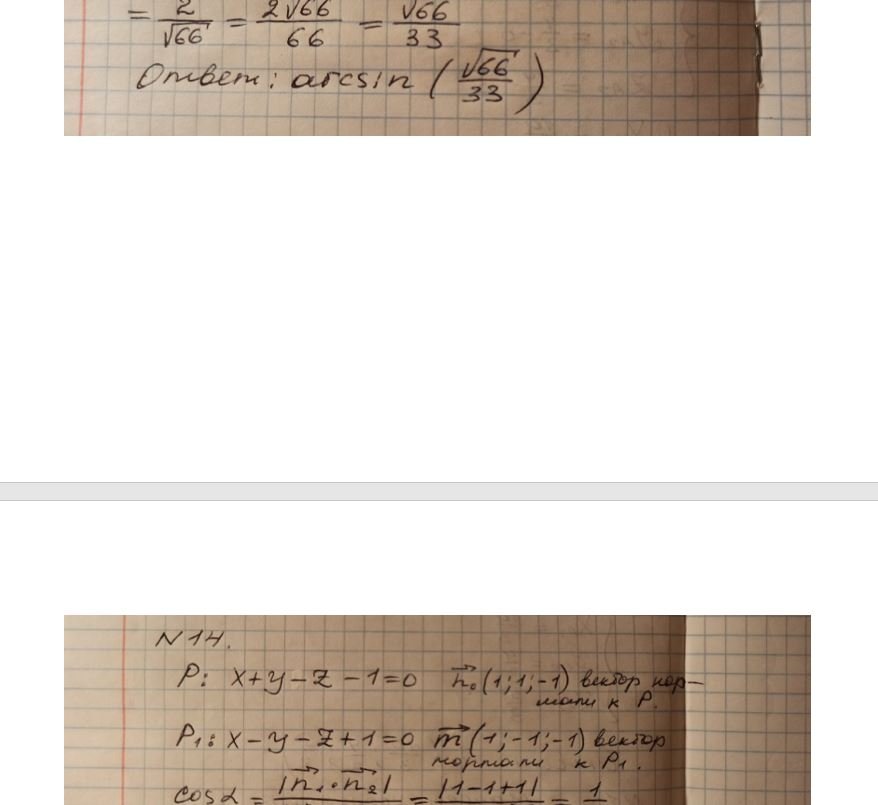 = 2/√66 = 2√66/66 = √66/33
Ответ: arcsin (√66/33)
N14.
P: x+y-z-1=0 n₀(1;1;-1) вектор нор-
мали к P.
P₁: x-y-z+1=0 m(1;-1;-1) вектор
нормали к P₁.
cosα = |n₁·n₂| = |1-1+1| = 1